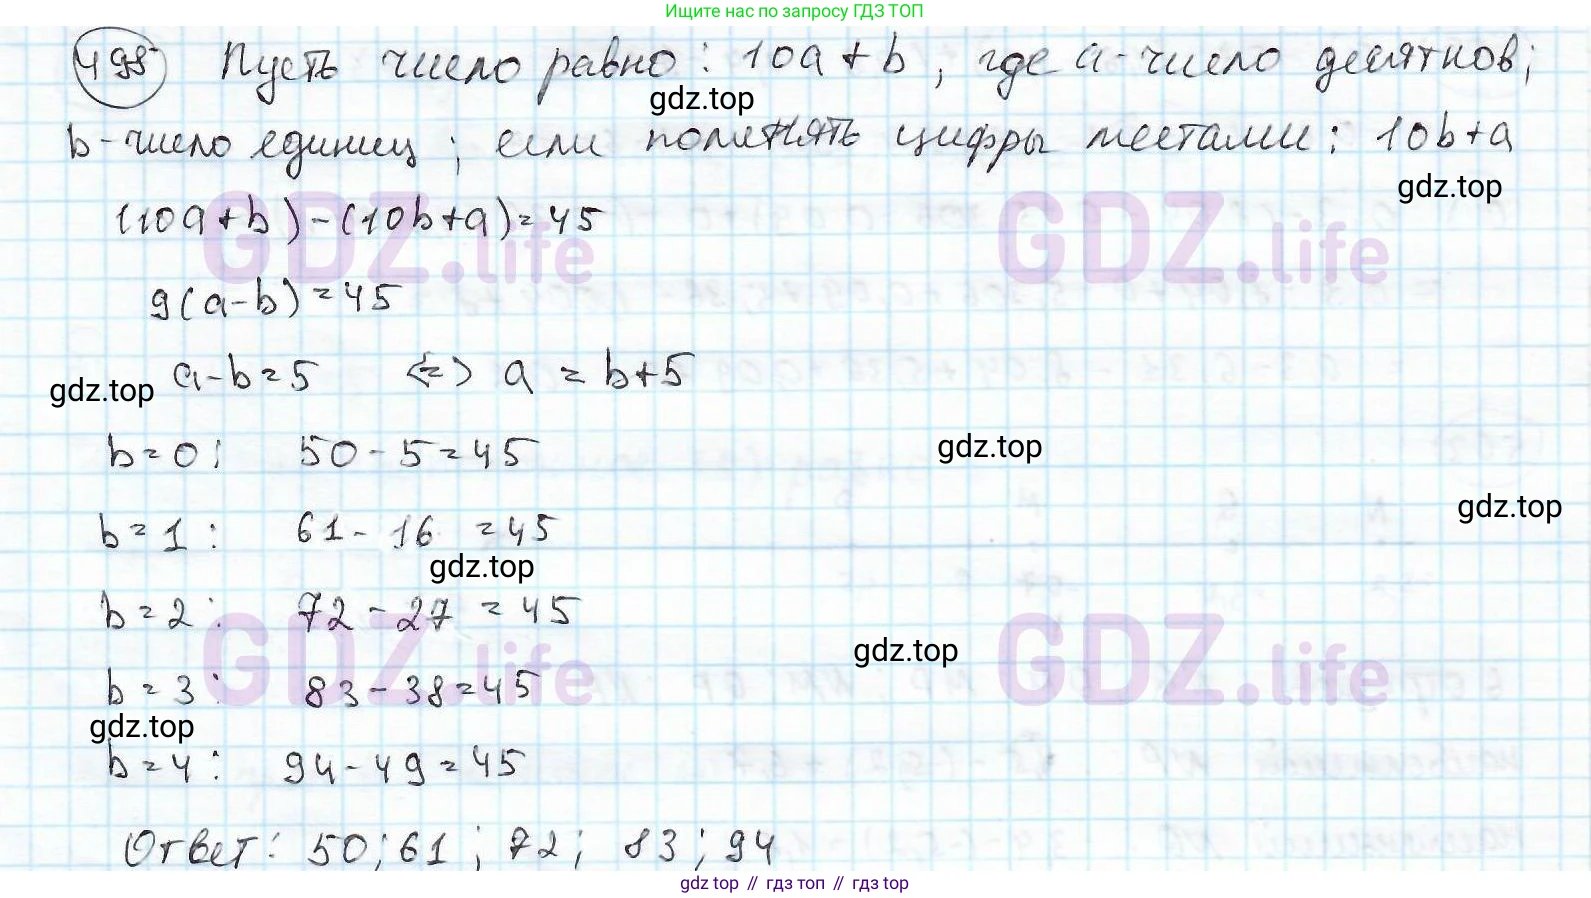 Ищите нас по запросу ГДЗ ТОП
498 Пусть число равно: 10a+b, где a-число десятков;
gdz.top
b-число единиц; если поменять цифры местами: 10b+a
gdz.top
(10a+b)-(10b+a)=45
GDZ.life GDZ.life
9(a-b)=45
a-b=5 <=> a=b+5
gdz.top
b=0: 50-5=45
gdz.top
gdz.top
b=1: 61-16=45
gdz.top
b=2: 72-27=45
GDZ.life GDZ.life
gdz.top
b=3: 83-38=45
gdz.top
b=4: 94-49=45
Ответ: 50; 61; 72; 83; 94
gdz top // гдз топ // гдз top